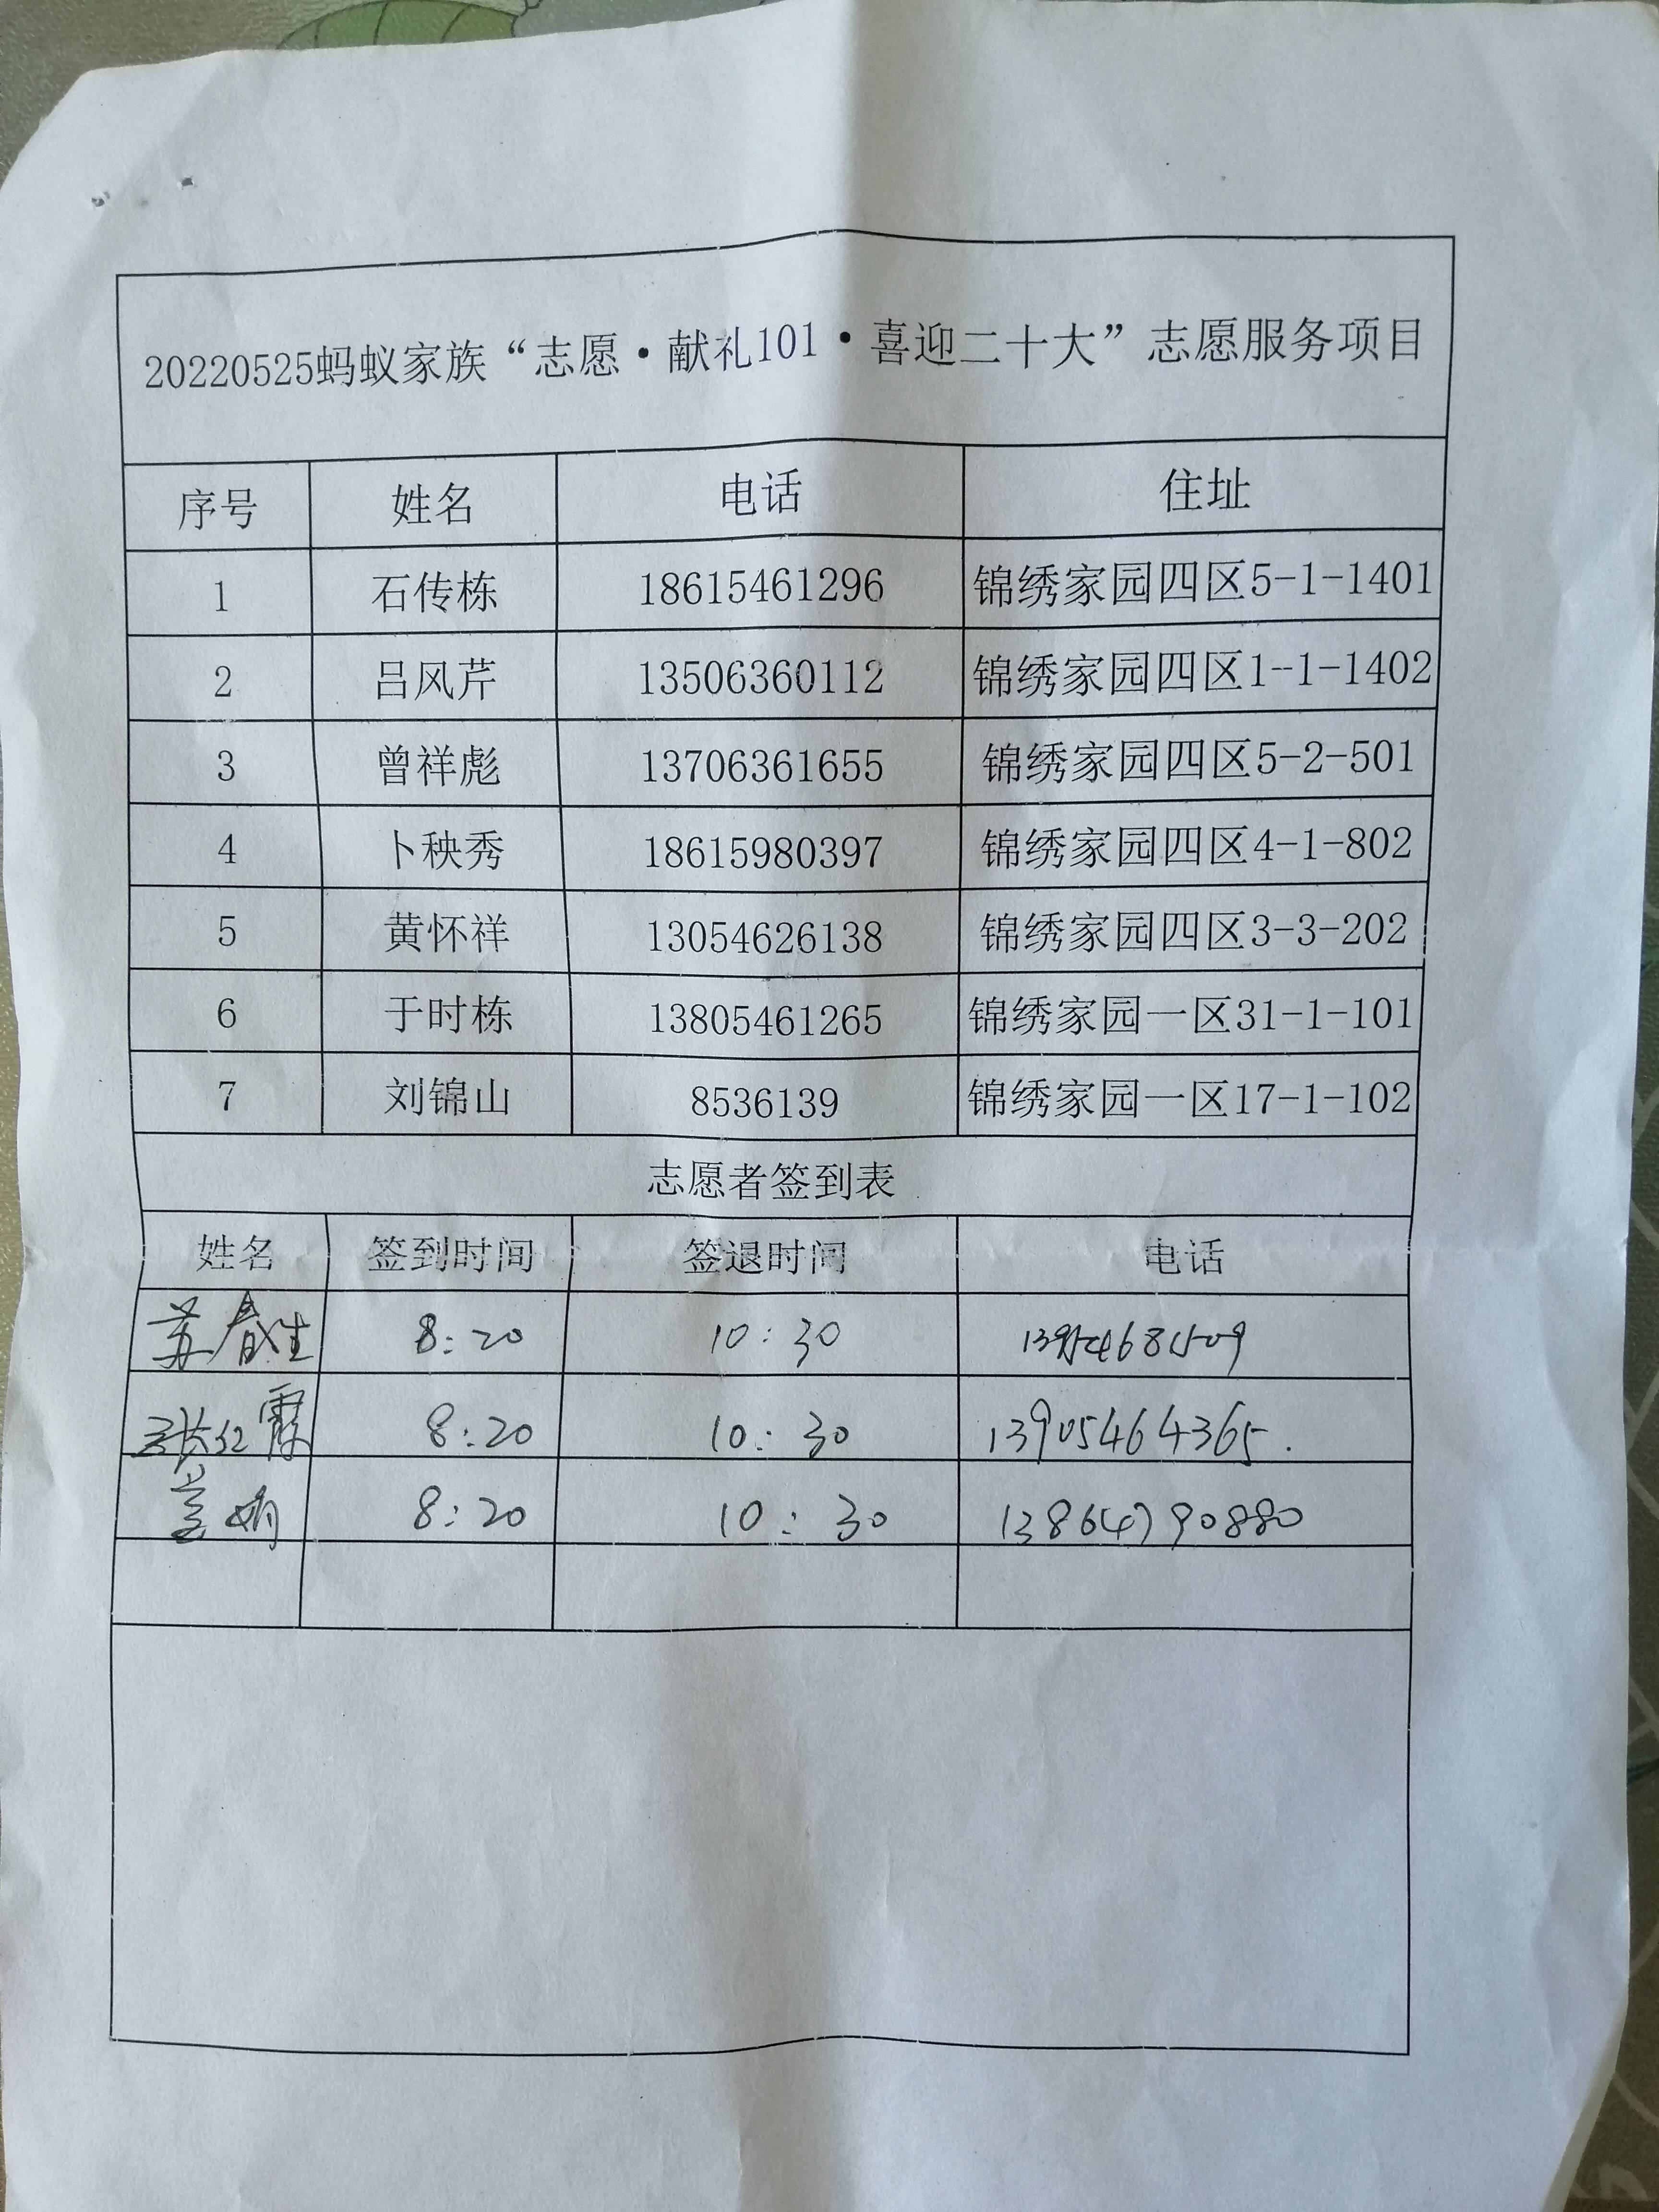 20220525蚂蚁家族“志愿·献礼101·喜迎二十大”志愿服务项目
序号 姓名 电话 住址
1 石传栋 18615461296 锦绣家园四区5-1-1401
2 吕风芹 13506360112 锦绣家园四区1-1-1402
3 曾祥彪 13706361655 锦绣家园四区5-2-501
4 卜秧秀 18615980397 锦绣家园四区4-1-802
5 黄怀祥 13054626138 锦绣家园四区3-3-202
6 于时栋 13805461265 锦绣家园一区31-1-101
7 刘锦山 8536139 锦绣家园一区17-1-102
志愿者签到表
姓名 签到时间 签退时间 电话
苏春生 8:20 10:30
张红霞 8:20 10:30 13905464365.
8:20 10:30